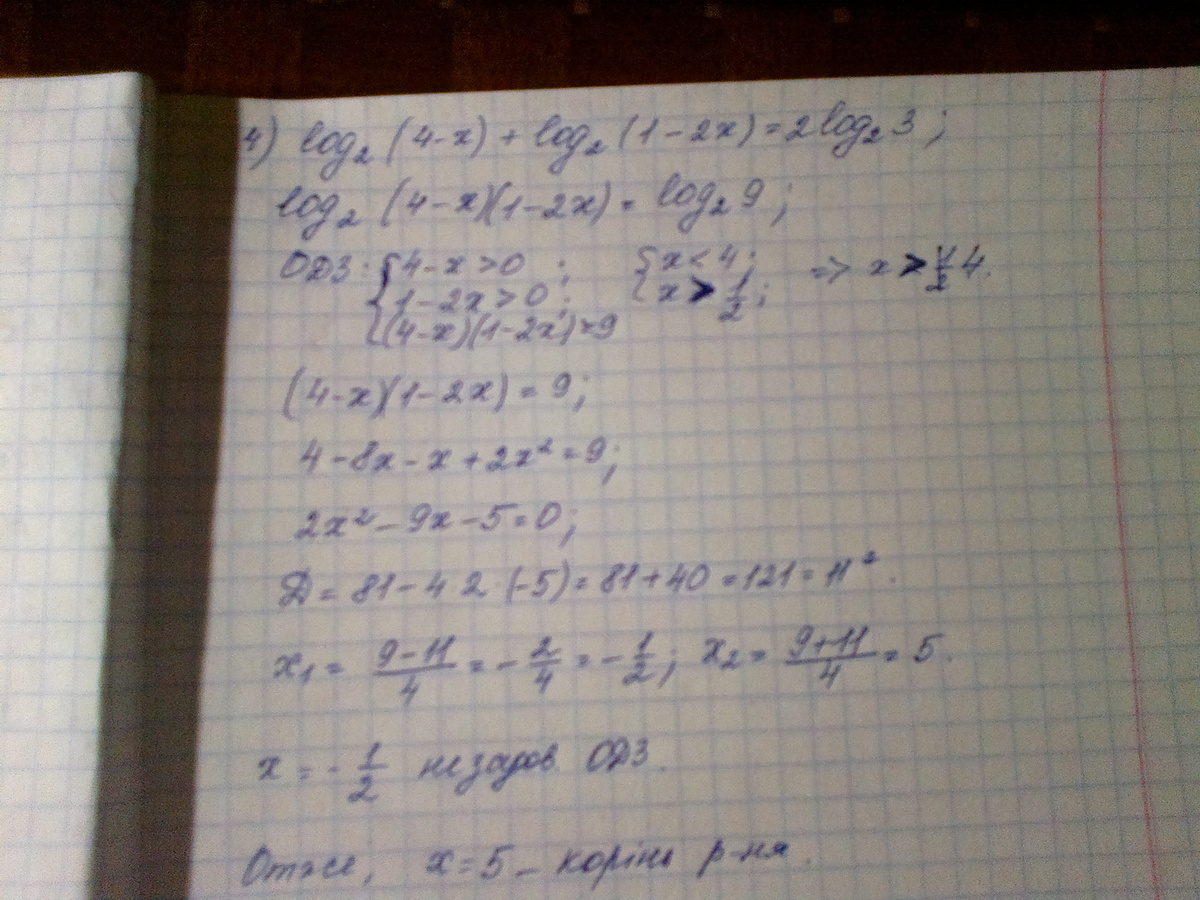 4) log₂ (4-x) + log₂ (1-2x) = 2log₂ 3;
log₂ (4-x)(1-2x) = log₂ 9;
ОДЗ: {4-x>0 ; {x<4; => x > 4.
{1-2x>0; {x > 1/2;
{(4-x)(1-2x)=9
(4-x)(1-2x) = 9;
4-8x-x+2x²=9;
2x²-9x-5=0;
Д = 81-4·2·(-5)=81+40=121=11².
x₁ = (9-11)/4 = -2/4 = -1/2; x₂ = (9+11)/4 = 5.
x = -1/2 не задов. ОДЗ.
Отже, x=5 - корінь р-ня.